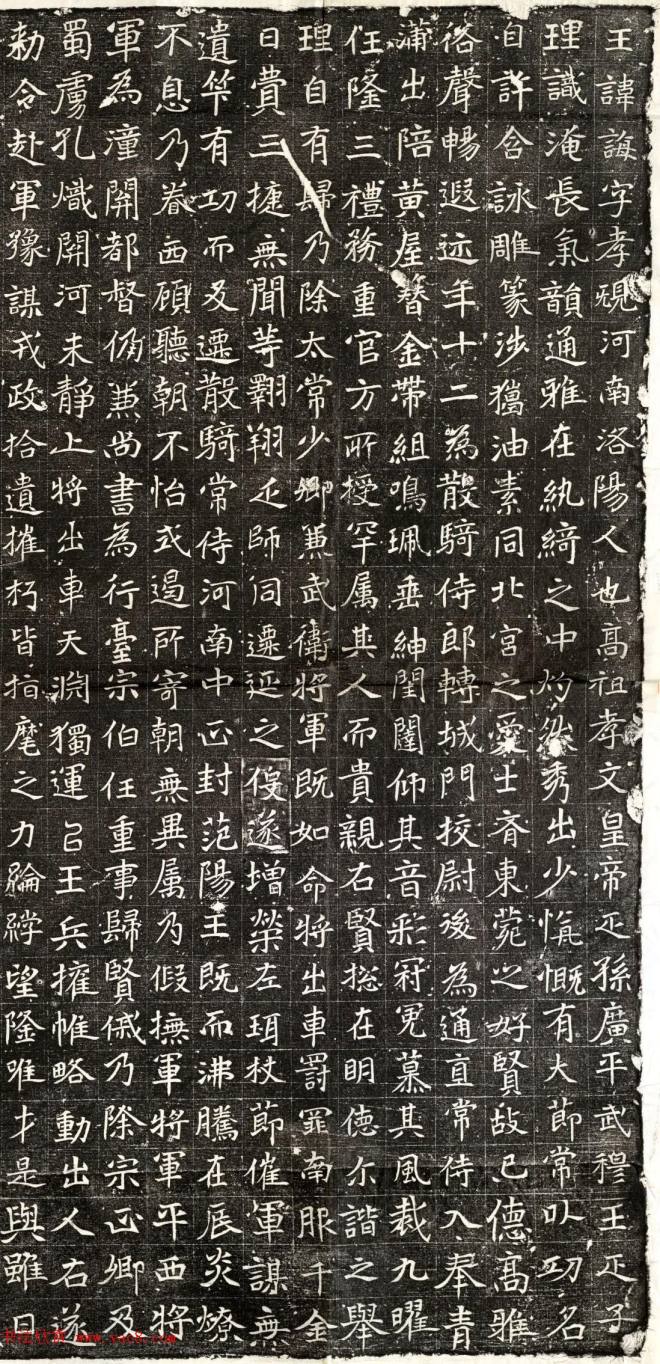 王諱誨字孝規河南洛陽人也高祖孝文皇帝之孫廣平武穆王之子
理識淹長氣韻通雅在紈綺之中灼然秀出少慷慨有大節常以功名
自許含詠雕篆涉獵油素同北宮之愛士齊東菀之好賢故已德高雅
俗聲暢遐迩年十二為散騎侍郎轉城門校尉後為通直常侍入奉青
蒲出陪黃屋替金帶組鳴珮垂紳閨闥仰其音彩冠冕慕其風裁九曜
任隆三禮務重官方所授罕属其人而貴親右賢揔在明德尒諧之舉
理自有歸乃除太常少卿兼武衛將軍既如命將出車罰罪南服千金
日費三捷無聞等翱翔之師同遷延之役遂增榮左珥杖節催軍謀無
遺筭有功而及遷散騎常侍河南中正封范陽王既而沸騰在辰炎燎
不息乃眷西顧聽朝不怡式遏所寄朝無異属乃假撫軍將軍平西將
軍為潼關都督仍兼尚書為行臺宗伯任重事歸賢戚乃除宗正卿及
蜀虜孔熾關河未靜上將出車天淵獨運召王兵擁帷略動出人右遂
勑令赴軍豫謀戎政拾遺摧朽皆指麾之力綸綍望隆唯才是與雖日
书法欣赏 www.yac8.com